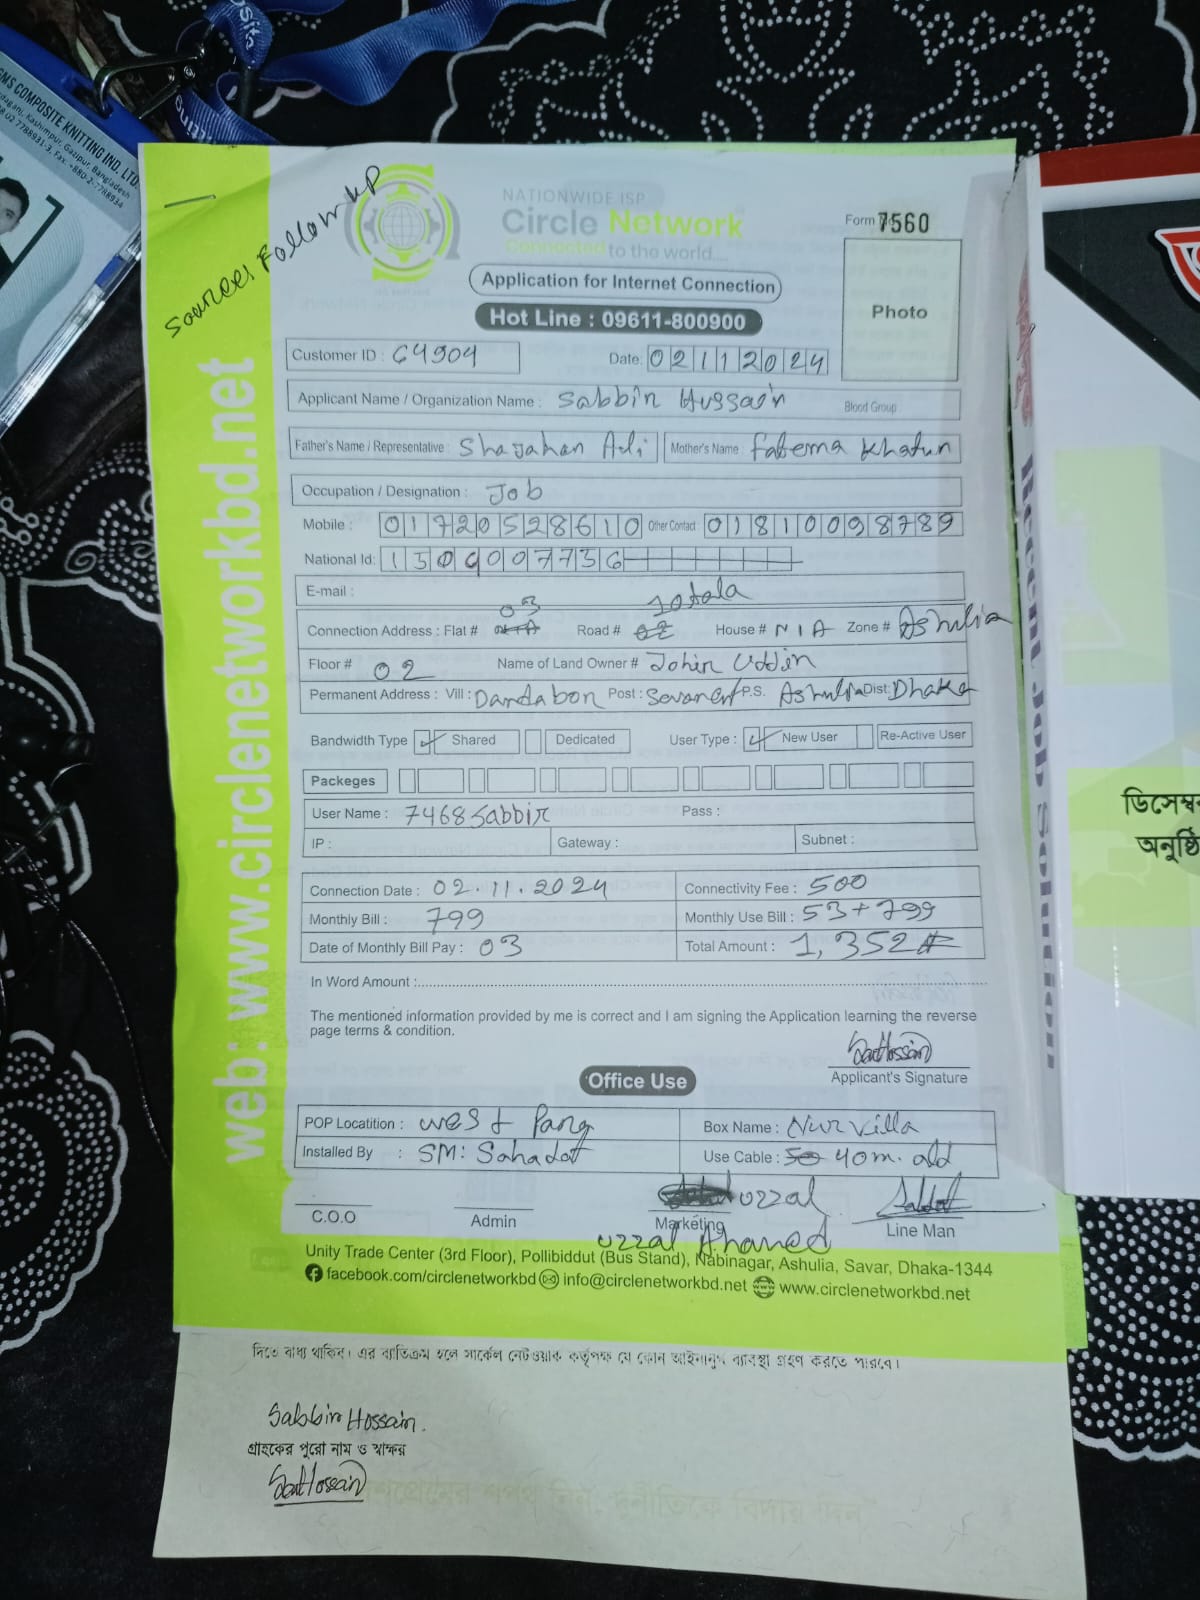 GMS COMPOSITE KNITTING IND. LTD.
Kashimpur, Gazipur, Bangladesh
Sources Follow up
NATIONWIDE ISP
Circle Network
Connected to the world....
Form 7560
Application for Internet Connection
Photo
Hot Line : 09611-800900
Customer ID : C4904 Date: 02112024
Applicant Name / Organization Name : Sabbir Hussain Blood Group
Father's Name / Representative : Shajahan Ali Mother's Name : Fatema Khatun
Occupation / Designation : Job
Mobile : 01720528610 Other Contact 01810098789
National Id:
E-mail :
03 10tala
Connection Address : Flat # Road # 02 House # N I A Zone # Ashulia
Floor # 02 Name of Land Owner # Johir Uddin
Permanent Address : Vill : Dandabon Post : P.S. Ashulia Dist: Dhaka
Bandwidth Type Shared Dedicated User Type : New User Re-Active User
Packeges
User Name : 7468Sabbir Pass :
IP : Gateway : Subnet :
Connection Date : 02.11.2024 Connectivity Fee : 500
Monthly Bill : 799 Monthly Use Bill : 53+799
Date of Monthly Bill Pay : 03 Total Amount : 1,352
In Word Amount :
The mentioned information provided by me is correct and I am signing the Application learning the reverse
page terms & condition.
Applicant's Signature
Office Use
POP Locatition : West Para Box Name : Nur Villa
Installed By : SM: Sahadat Use Cable : 50 40m. old
uzzal
C.O.O Admin Marketing Line Man
uzzal Ahamed
Unity Trade Center (3rd Floor), Pollibiddut (Bus Stand), Nabinagar, Ashulia, Savar, Dhaka-1344
facebook.com/circlenetworkbd info@circlenetworkbd.net www.circlenetworkbd.net
web: www.circlenetworkbd.net
দিতে বাধ্য থাকিব। এর ব্যতিক্রম হলে সার্কেল নেটওয়াক কর্তৃপক্ষ যে কোন আইনানুগ ব্যবস্থা গ্রহণ করতে পারবে।
Sabbir Hossain.
গ্রাহকের পুরো নাম ও স্বাক্ষর
Recent Job Solution
ডিসেম্বর
অনুষ্ঠি